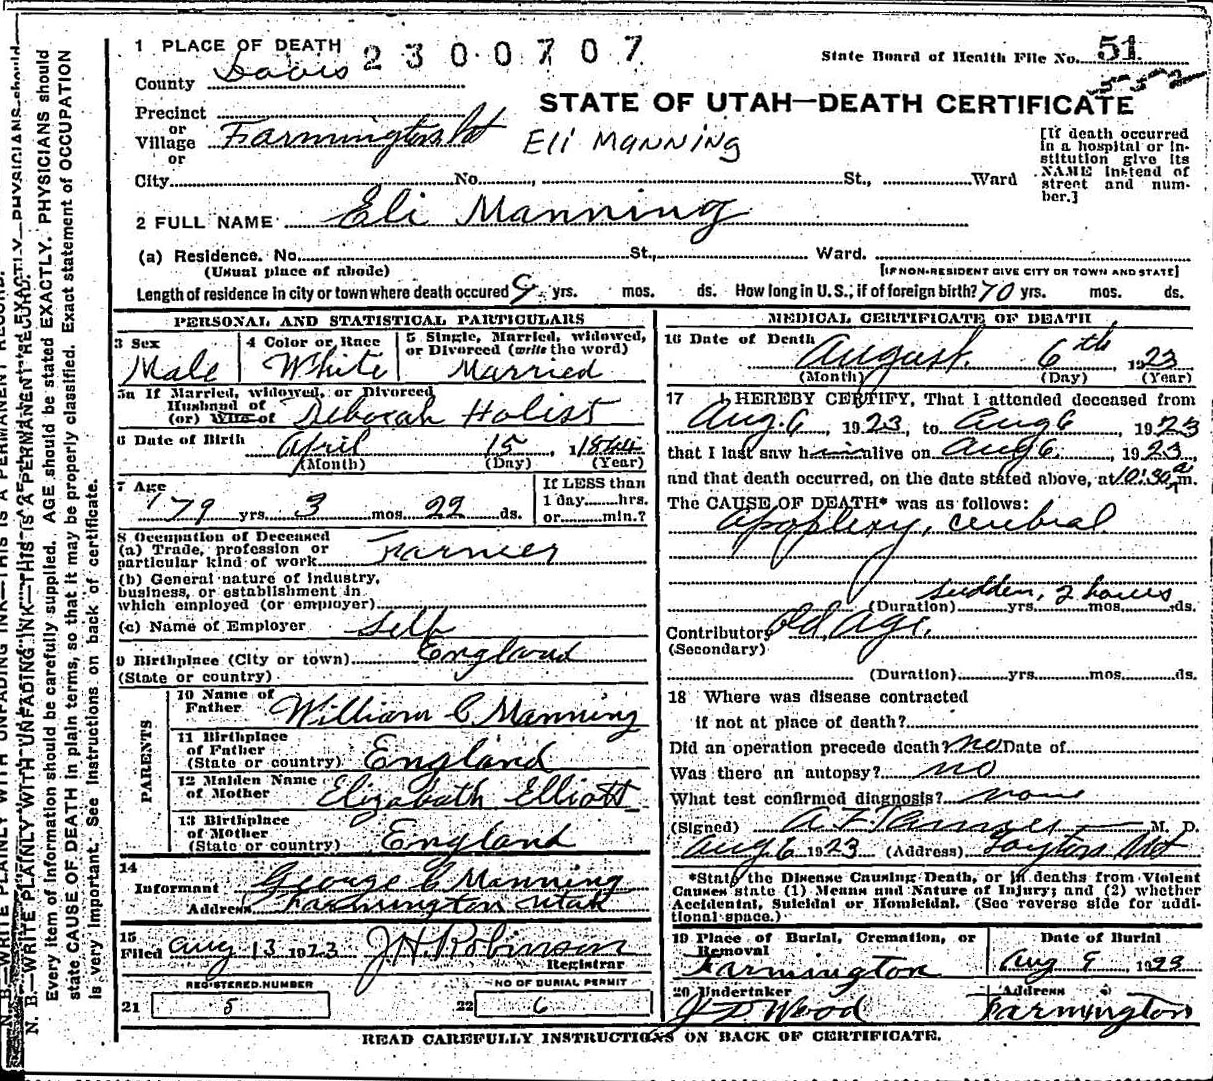 1 PLACE OF DEATH 2300707 State Board of Health File No. 51
County Davis 552
STATE OF UTAH—DEATH CERTIFICATE
Precinct
or
Village Farmington Ut Eli Manning
or
City No. , St., Ward
[If death occurred in a hospital or institution give its NAME instead of street and number.]
2 FULL NAME Eli Manning
(a) Residence. No. St., Ward.
(Usual place of abode) [IF NON-RESIDENT GIVE CITY OR TOWN AND STATE]
Length of residence in city or town where death occured yrs. mos. ds. How long in U. S., if of foreign birth? 70 yrs. mos. ds.
PERSONAL AND STATISTICAL PARTICULARS
3 Sex 4 Color or Race 5 Single, Married, widowed,
or Divorced (write the word)
Male White Married
5a If Married, widowed, or Divorced
Husband of
(or) Wife of Deborah Holist
6 Date of Birth April 15, 1844
(Month) (Day) (Year)
7 Age If LESS than
79 yrs. 3 mos. 22 ds. 1 day hrs.
or min.?
8 Occupation of Deceased
(a) Trade, profession or
particular kind of work Farmer
(b) General nature of industry,
business, or establishment in
which employed (or employer)
(c) Name of Employer Self
9 Birthplace (City or town) England
(State or country)
PARENTS
10 Name of
Father William C Manning
11 Birthplace
of Father
(State or country) England
12 Maiden Name
of Mother Elizabath Elliott
13 Birthplace
of Mother
(State or country) England
14
Informant George C Manning
Address Farmington Utah
15
Filed Aug 13 1923 J H Robinson
Registrar
REGISTERED NUMBER NO OF BURIAL PERMIT
21 5 22 6
MEDICAL CERTIFICATE OF DEATH
16 Date of Death
August 6th 1923
(Month) (Day) (Year)
17 I HEREBY CERTIFY, That I attended deceased from
Aug. 6, 1923, to Aug 6 1923
that I last saw him alive on Aug 6, 1923,
and that death occurred, on the date stated above, at 10:30 a m.
The CAUSE OF DEATH* was as follows:
Apoplexy, cerebral
sudden, 2 hours
(Duration) yrs. mos. ds.
Contributory Old Age.
(Secondary)
(Duration) yrs. mos. ds.
18 Where was disease contracted
if not at place of death?
Did an operation precede death? no Date of
Was there an autopsy? no
What test confirmed diagnosis? none
(Signed) M. D.
Aug 6 1923 (Address) Layton Ut
*State the Disease Causing Death, or in deaths from Violent
Causes state (1) Means and Nature of Injury; and (2) whether
Accidental, Suicidal or Homicidal. (See reverse side for addi-
tional space.)
19 Place of Burial, Cremation, or Date of Burial
Removal
Farmington Aug 9 1923
20 Undertaker Address
Wood Farmington
READ CAREFULLY INSTRUCTIONS ON BACK OF CERTIFICATE.
N. B.—WRITE PLAINLY WITH UNFADING INK—THIS IS A PERMANENT RECORD.
Every item of information should be carefully supplied. AGE should be stated EXACTLY. PHYSICIANS should
state CAUSE OF DEATH in plain terms, so that it may be properly classified. Exact statement of OCCUPATION
is very important. See instructions on back of certificate.